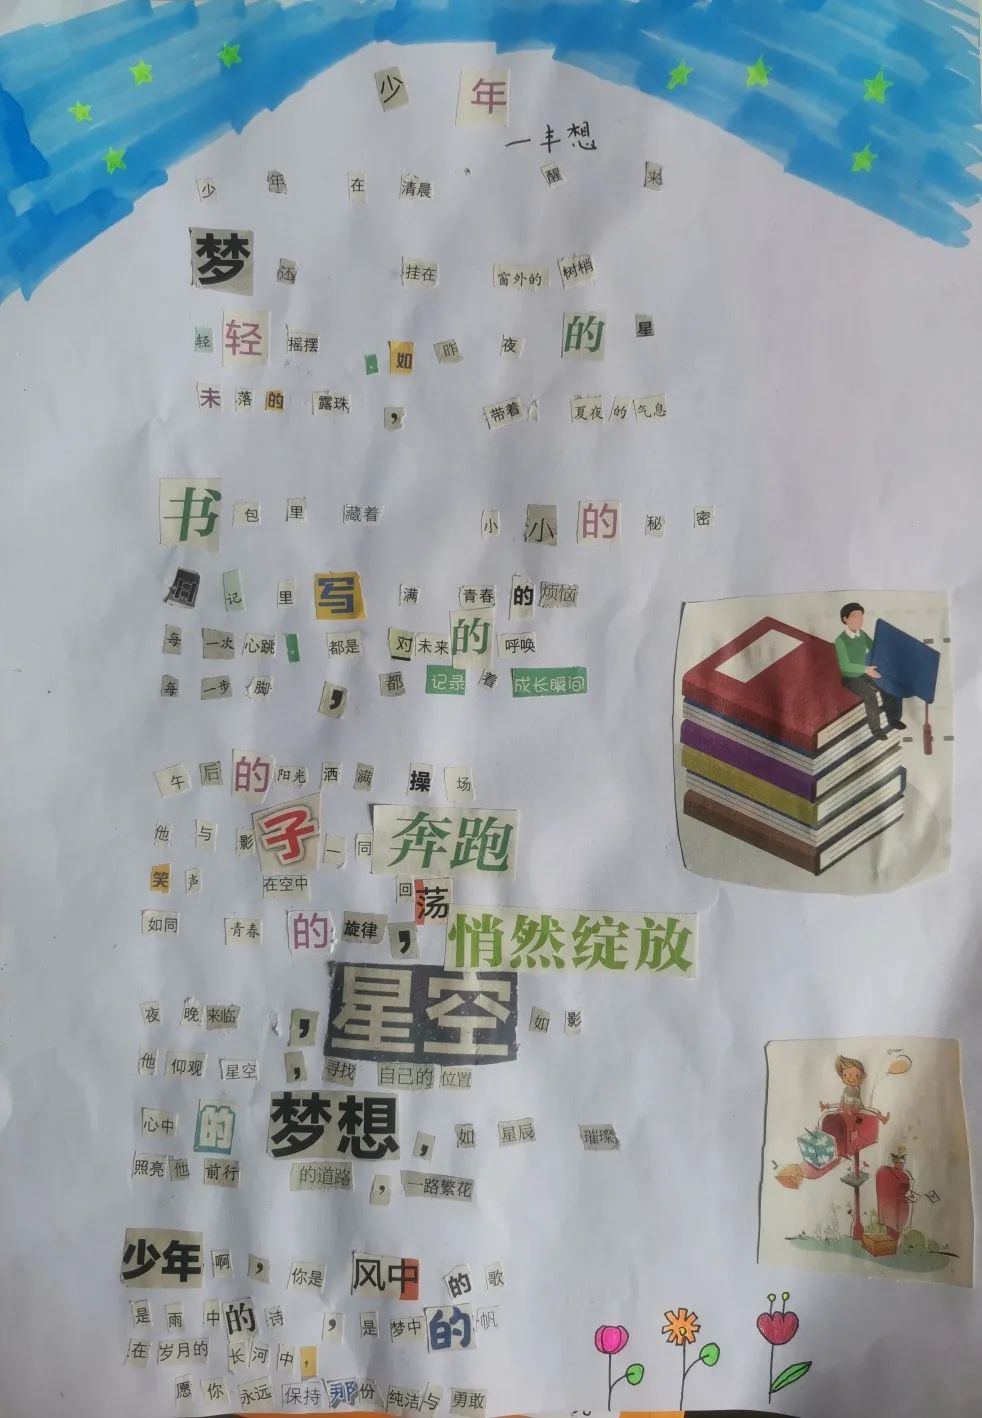 少年
一丰想
少年在清晨，醒来
梦还挂在窗外的树梢
轻轻摇摆，如昨夜的星
未落的露珠，带着夏夜的气息
书包里藏着小小的秘密
日记里写满青春的烦恼
每一次心跳，都是对未来的呼唤
每一步脚，都记录着成长瞬间
午后的阳光洒满操场
他与影子一同奔跑
笑声在空中回荡
如同青春的旋律，悄然绽放
夜晚来临，星空如影
他仰观星空，寻找自己的位置
心中的梦想，如星辰璀璨
照亮他前行的道路，一路繁花
少年啊，你是风中的歌
是雨中的诗，是梦中的帆
在岁月的长河中，
愿你永远保持那份纯洁与勇敢